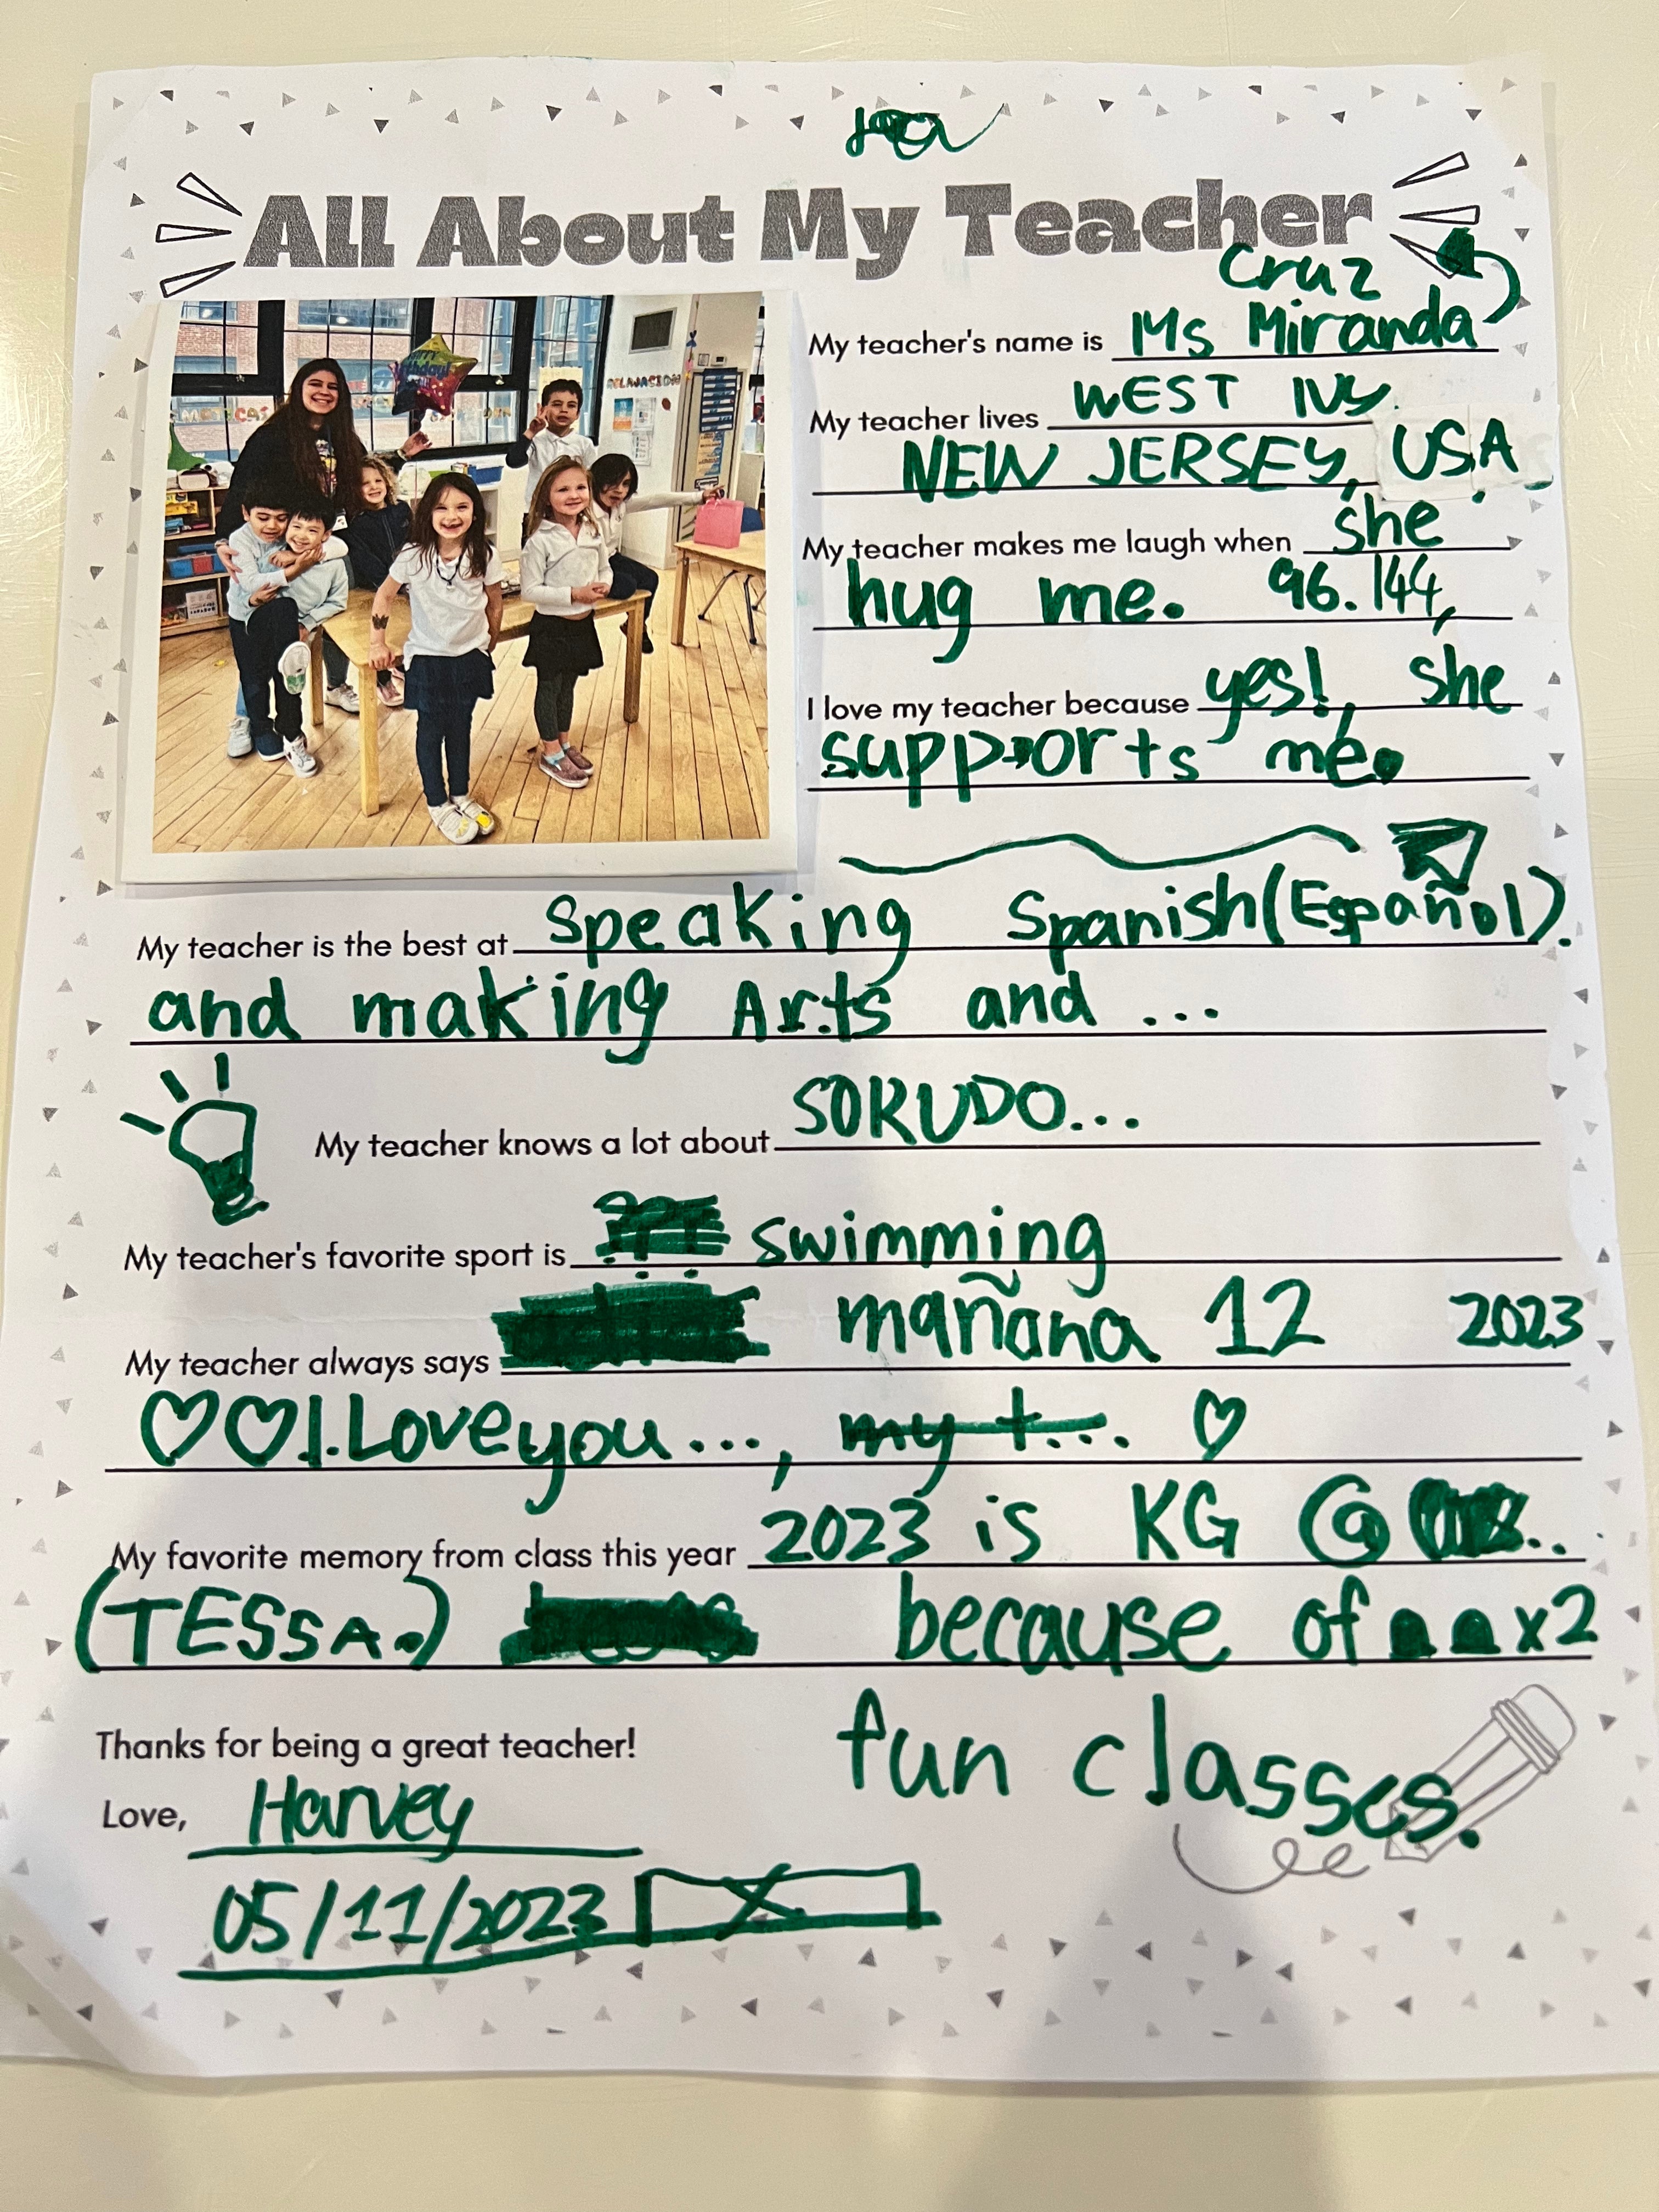 All About My Teacher
Cruz
My teacher's name is Ms Miranda
My teacher lives WEST
NEW JERSEY, USA
My teacher makes me laugh when she
hug me. 96.144,
I love my teacher because yes!, she
supports me.
My teacher is the best at speaking Spanish(Español).
and making Arts and ...
My teacher knows a lot about SORUDO...
My teacher's favorite sport is swimming
My teacher always says mañana 12 2023
♡♡I.Love you..., my t.... ♡
My favorite memory from class this year 2023 is KG @
(TESSA.) because of x2
fun classes.
Thanks for being a great teacher!
Love, Harvey
05/11/2023
RELAJACION